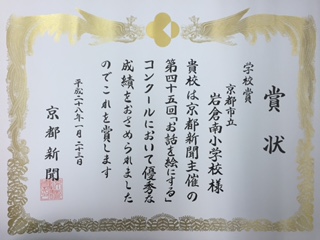 賞状
学校賞
京都市立
岩倉南小学校様
貴校は京都新聞主催の
第四十五回「お話を絵にする」
コンクールにおいて優秀な
成績をおさめられました
のでこれを賞します
平成二十八年一月二十三日
京都新聞